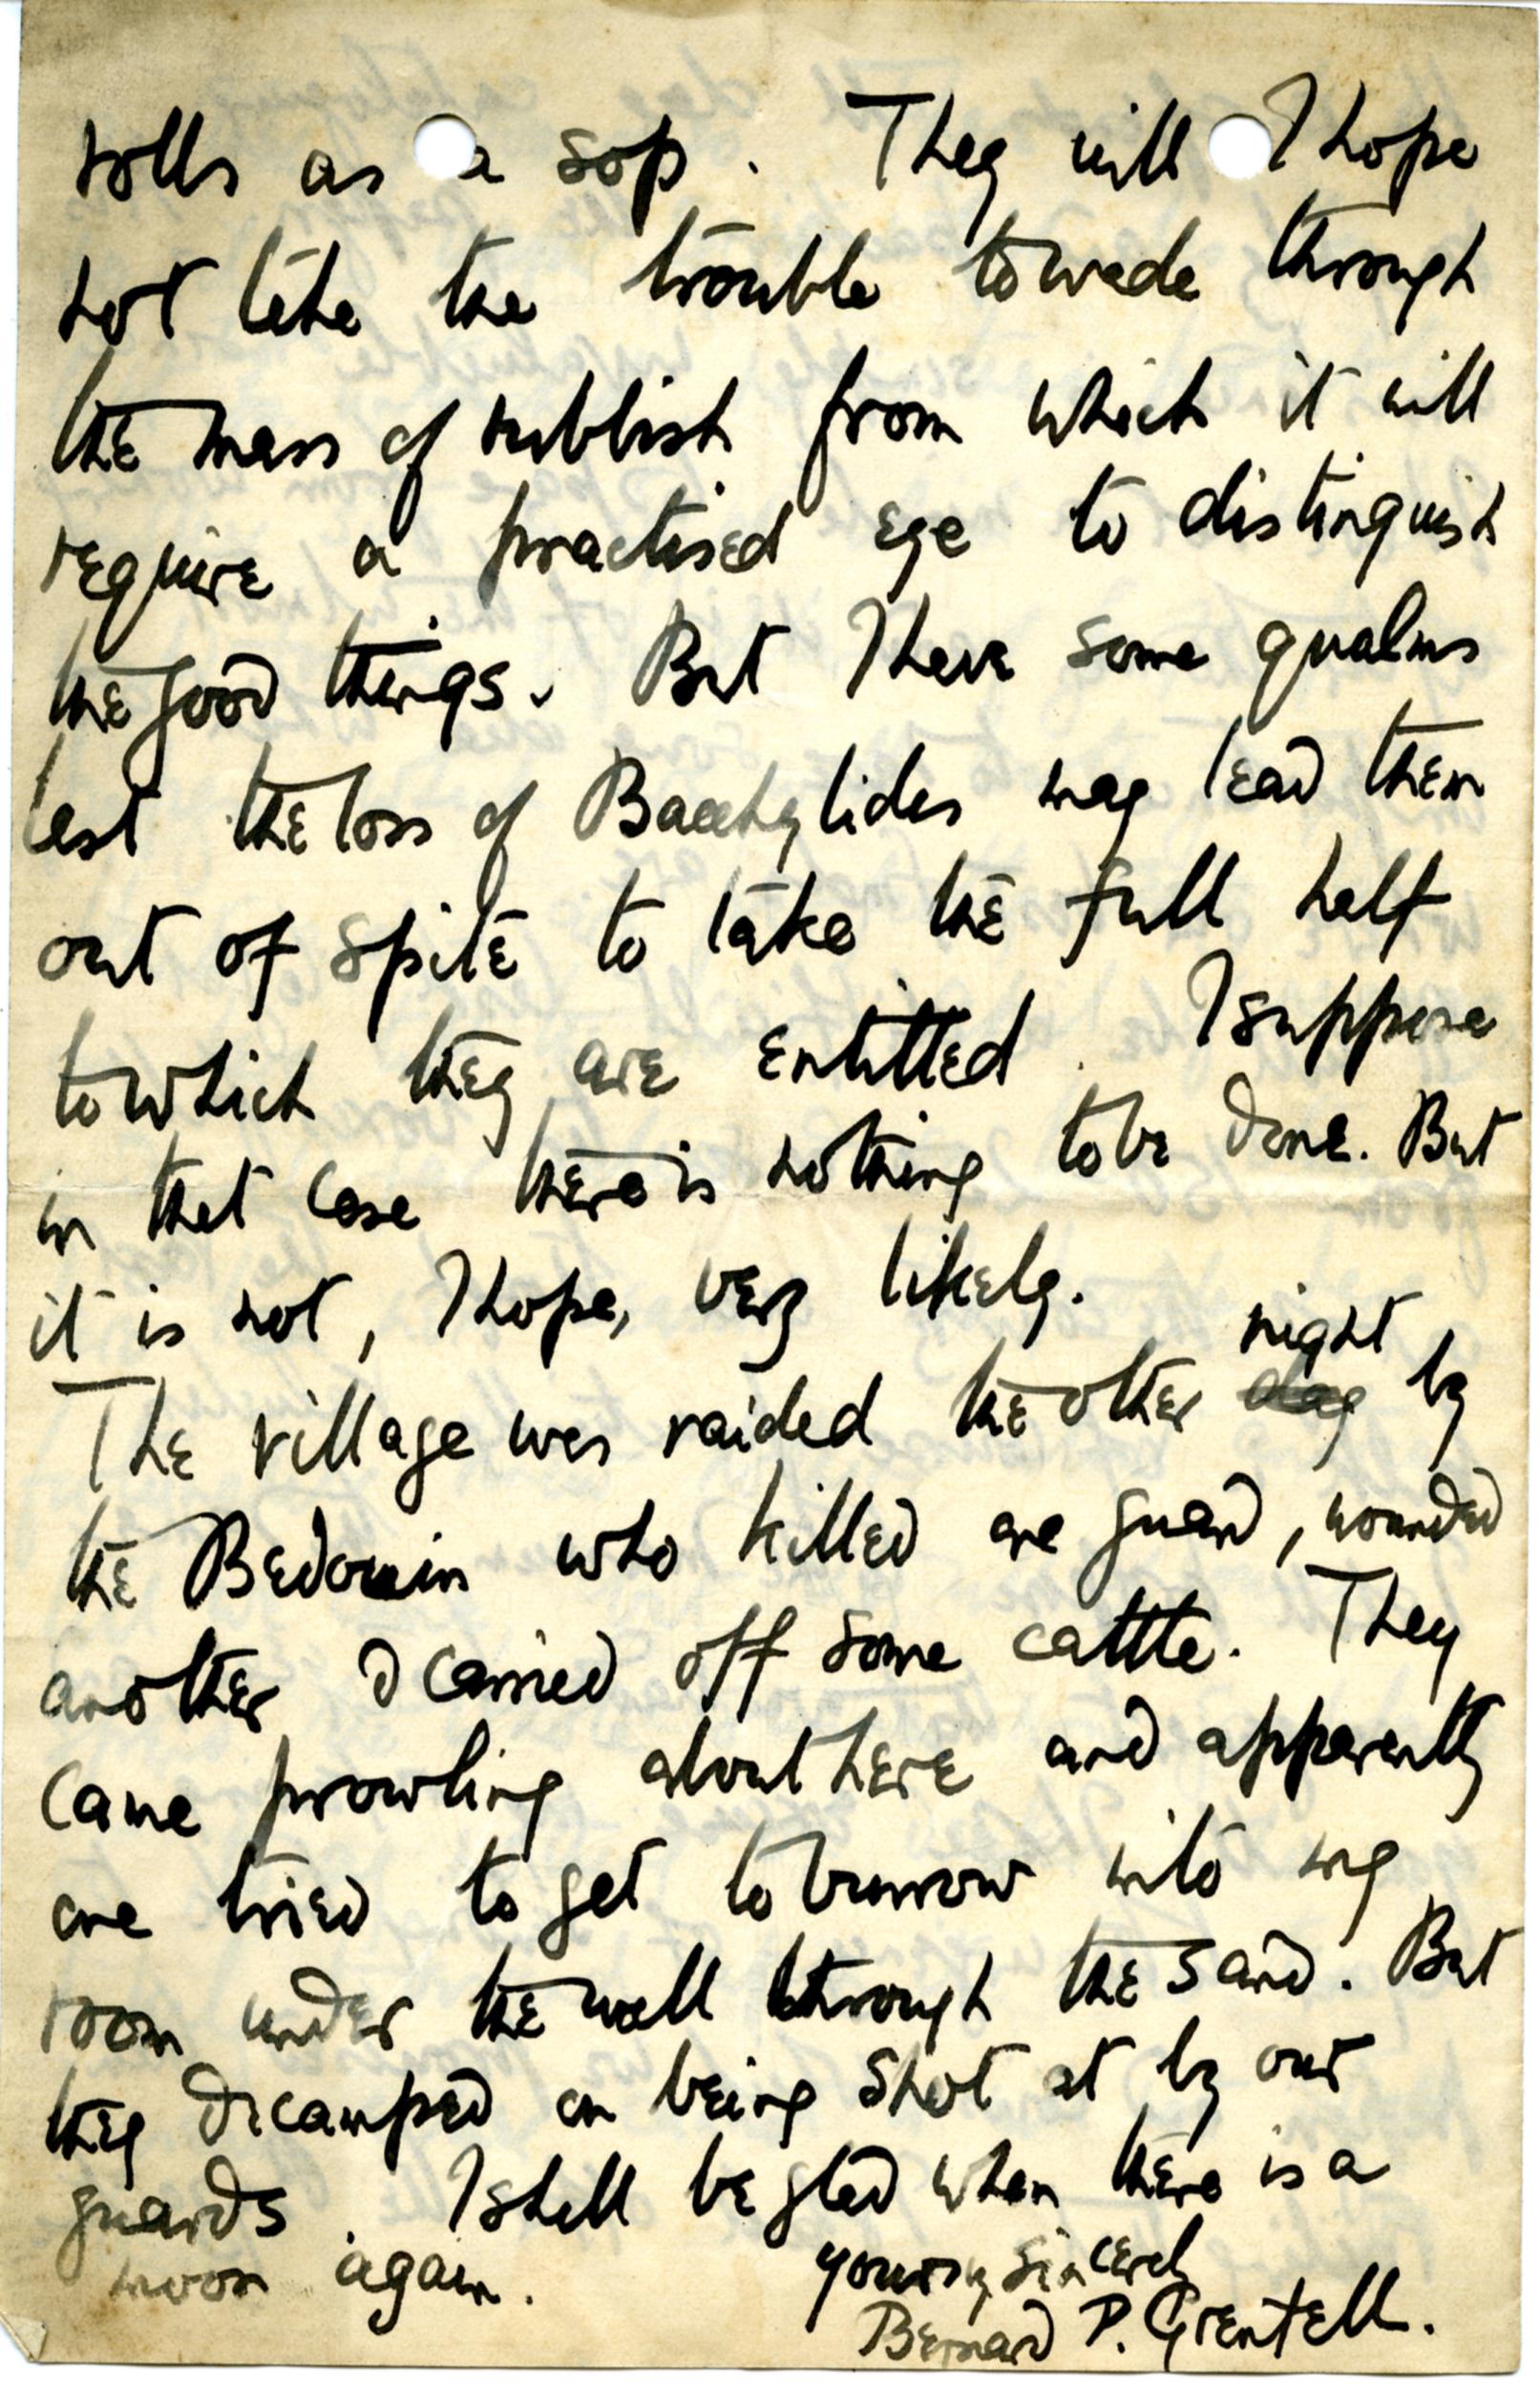 rolls as a sop. They will I hope
not take the trouble to wade through
the mass of rubbish from which it will
require a practised eye to distinguish
the good things. But I have some qualms
lest the loss of Bacchylides may lead them
out of spite to take the full half
to which they are entitled. I suppose
in that case there is nothing to be done. But
it is not, I hope, very likely.
night
The village was raided the other day by
the Bedouin who killed one guard, wounded
another & carried off some cattle. They
came prowling about here and apparently
one tried to get to burrow into my
room under the wall through the sand. But
they decamped on being shot at by our
guards. I shall be glad when there is a
moon again.
yours sincerely
Bernard P. Grenfell.